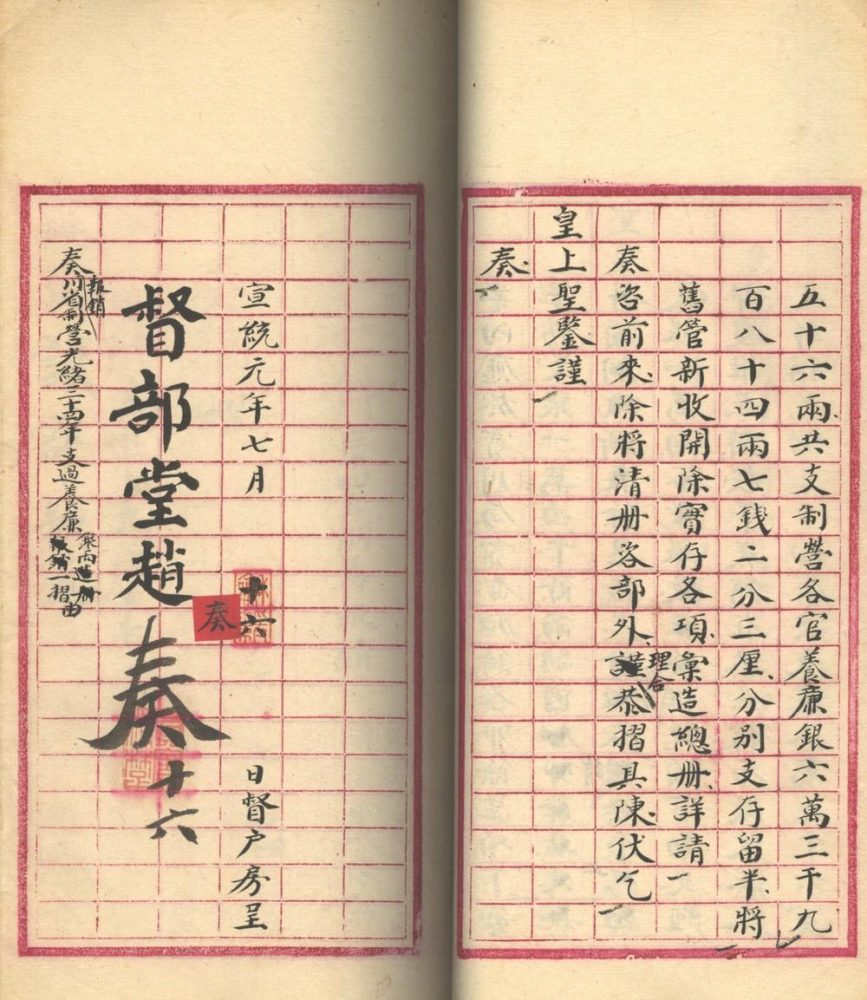 五十六兩共支制營各官養廉銀六萬三千九
百八十四兩七錢二分三厘分別支存留半將
舊管新收開除實存各項彙造總册詳請
奏咨前來除將清册咨部外謹理合恭摺具陳伏乞
皇上聖鑒謹
奏
宣統元年七月十六日督户房呈
奏
督部堂趙奏十六
奏報銷川省制營光緒三十四年支過養廉銀兩造册報銷一摺由